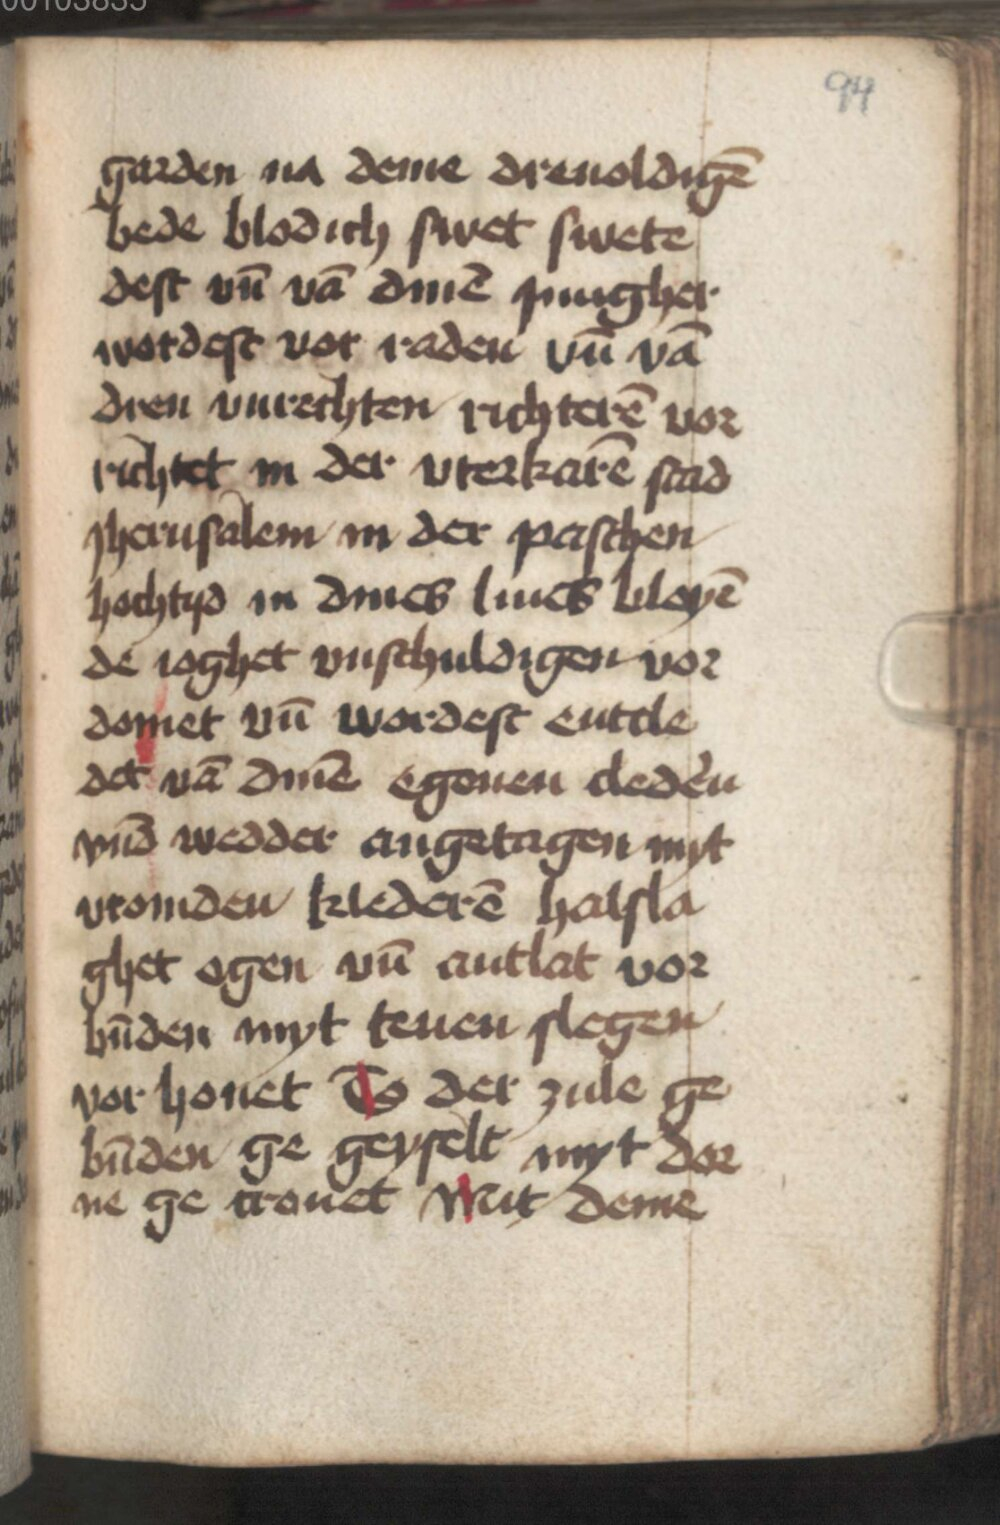 00103835
94
garden na deme dreuoldigē
bede blodich swet swete
dest vn̄ vā dinē iungher
wordest vor raden vn̄ vā
dren vnrechten richterē vor
richtet in der vterkarē stad
Jherusalem in der paschen
hochtyd in dines liues bloyē
de ioghet vnschuldigen vor
domet vn̄ wordest entcle
det vā dinē egenen cleden
vnd wedder angetagen myt
vromden klederē halsla
ghet ogen vn̄ antlat vor
bn̄den myt teuen slegen
vor honet To der zule ge
bn̄den ge geyselt myt dor
ne ge cronet Mit deme